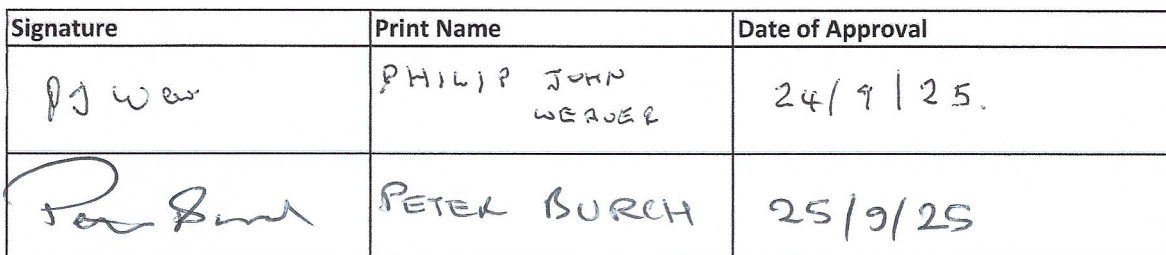 Signature Print Name Date of Approval
PHILIP JOHN
WEAVER
24/9/25.
PETER BURCH 25/9/25